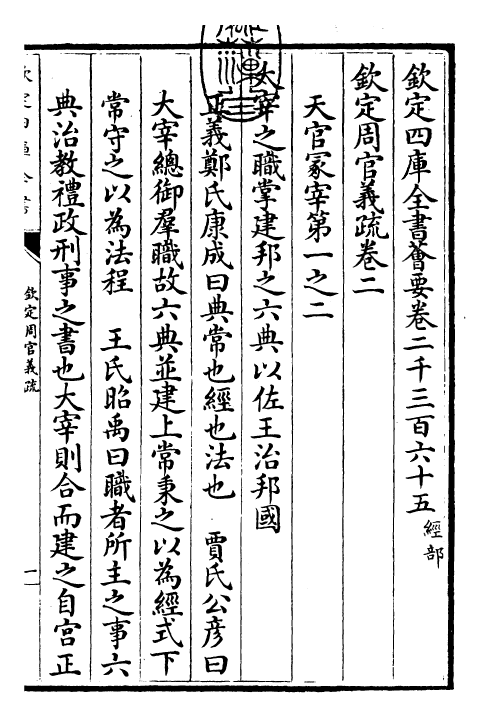 欽定四庫全書薈要卷二千三百六十五 經部
欽定周官義疏卷二
天官冢宰第一之二
大宰之職掌建邦之六典以佐王治邦國
正義鄭氏康成曰典常也經也法也 賈氏公彦曰
大宰總御羣職故六典並建上常秉之以為經式下
常守之以為法程 王氏昭禹曰職者所主之事六
典治教禮政刑事之書也大宰則合而建之自宫正
欽定四庫全書
欽定周官義疏
一